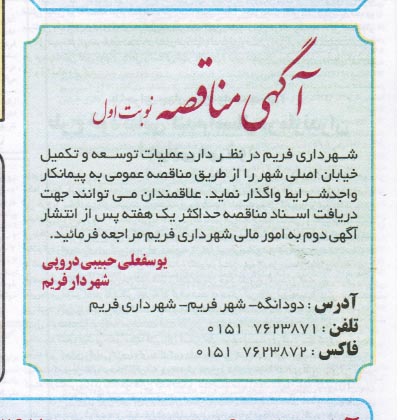 آگهی مناقصه نوبت اول
شهرداری فریم در نظر دارد عملیات توسعه و تکمیل
خیابان اصلی شهر را از طریق مناقصه عمومی به پیمانکار
واجدشرایط واگذار نماید. علاقمندان می توانند جهت
دریافت اسناد مناقصه حداکثر یک هفته پس از انتشار
آگهی دوم به امور مالی شهرداری فریم مراجعه فرمائید.
یوسفعلی حبیبی دروپی
شهردار فریم
آدرس : دودانگه- شهر فریم- شهرداری فریم
تلفن : ۷۶۲۳۸۷۱ ۰۱۵۱
فاکس : ۷۶۲۳۸۷۲ ۰۱۵۱